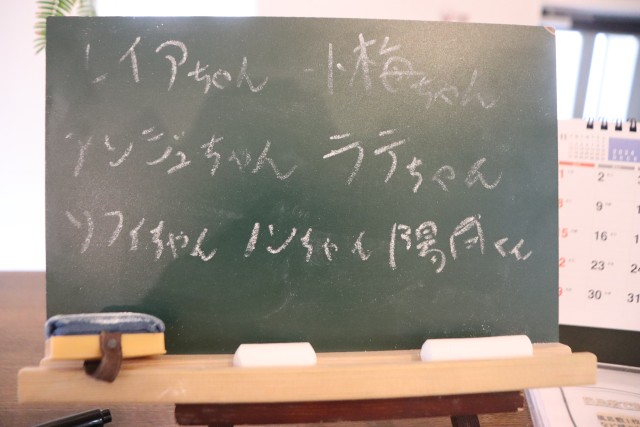 レイアちゃん 小梅ちゃん
ソンジュちゃん ラテちゃん
ソフィちゃん ノンちゃん 陽向くん
1 2
9
16
22 23
29 30 31